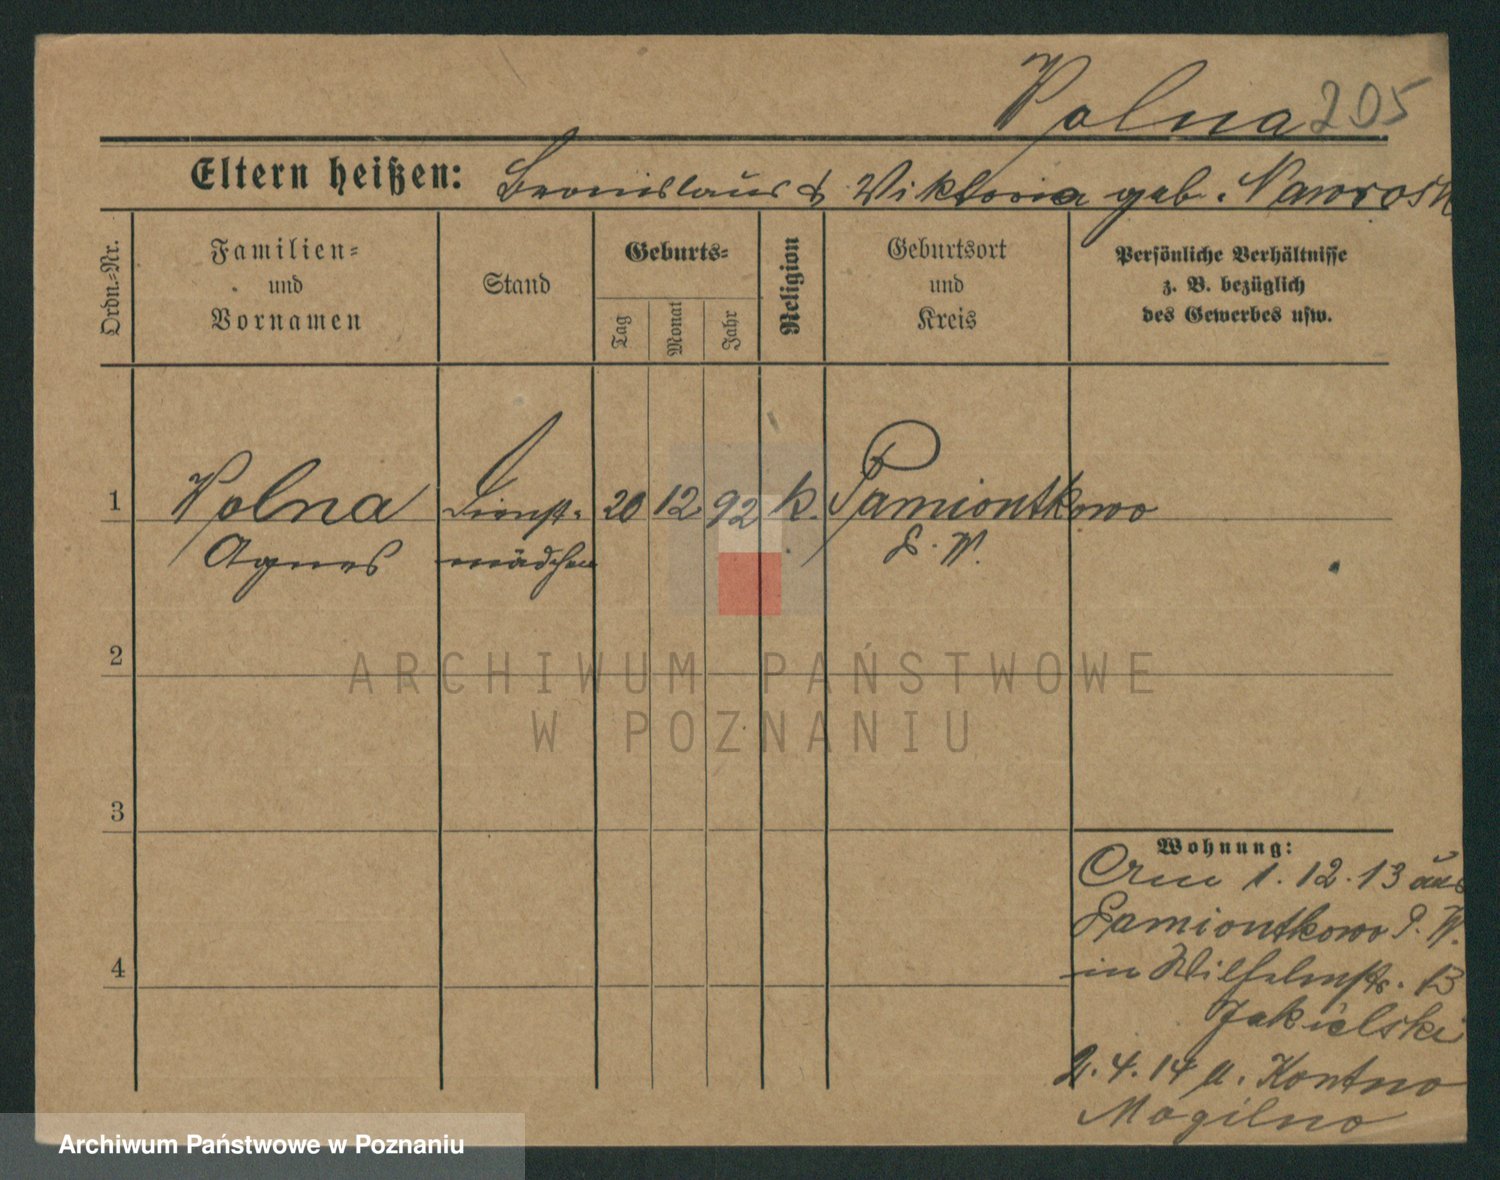 Polna 205
Eltern heißen: Bronislaus & Viktoria geb. Nawrosk
Ordn.-Nr.
Familien-
und
Vornamen
Stand
Geburts-
Tag
Monat
Jahr
Religion
Geburtsort
und
Kreis
Persönliche Verhältnisse
z. B. bezüglich
des Gewerbes usw.
1 Polna Dienst- 20 12 92 k. Pamiontkowo
Agnes mädchen P. W.
2
3
4
Wohnung:
Am 1.12.13 aus
Pamiontkowo P. W.
in Wilhelmstr. 13
Jakielski
2.4.14 n.
Mogilno
ARCHIWUM PAŃSTWOWE
W POZNANIU
Archiwum Państwowe w Poznaniu